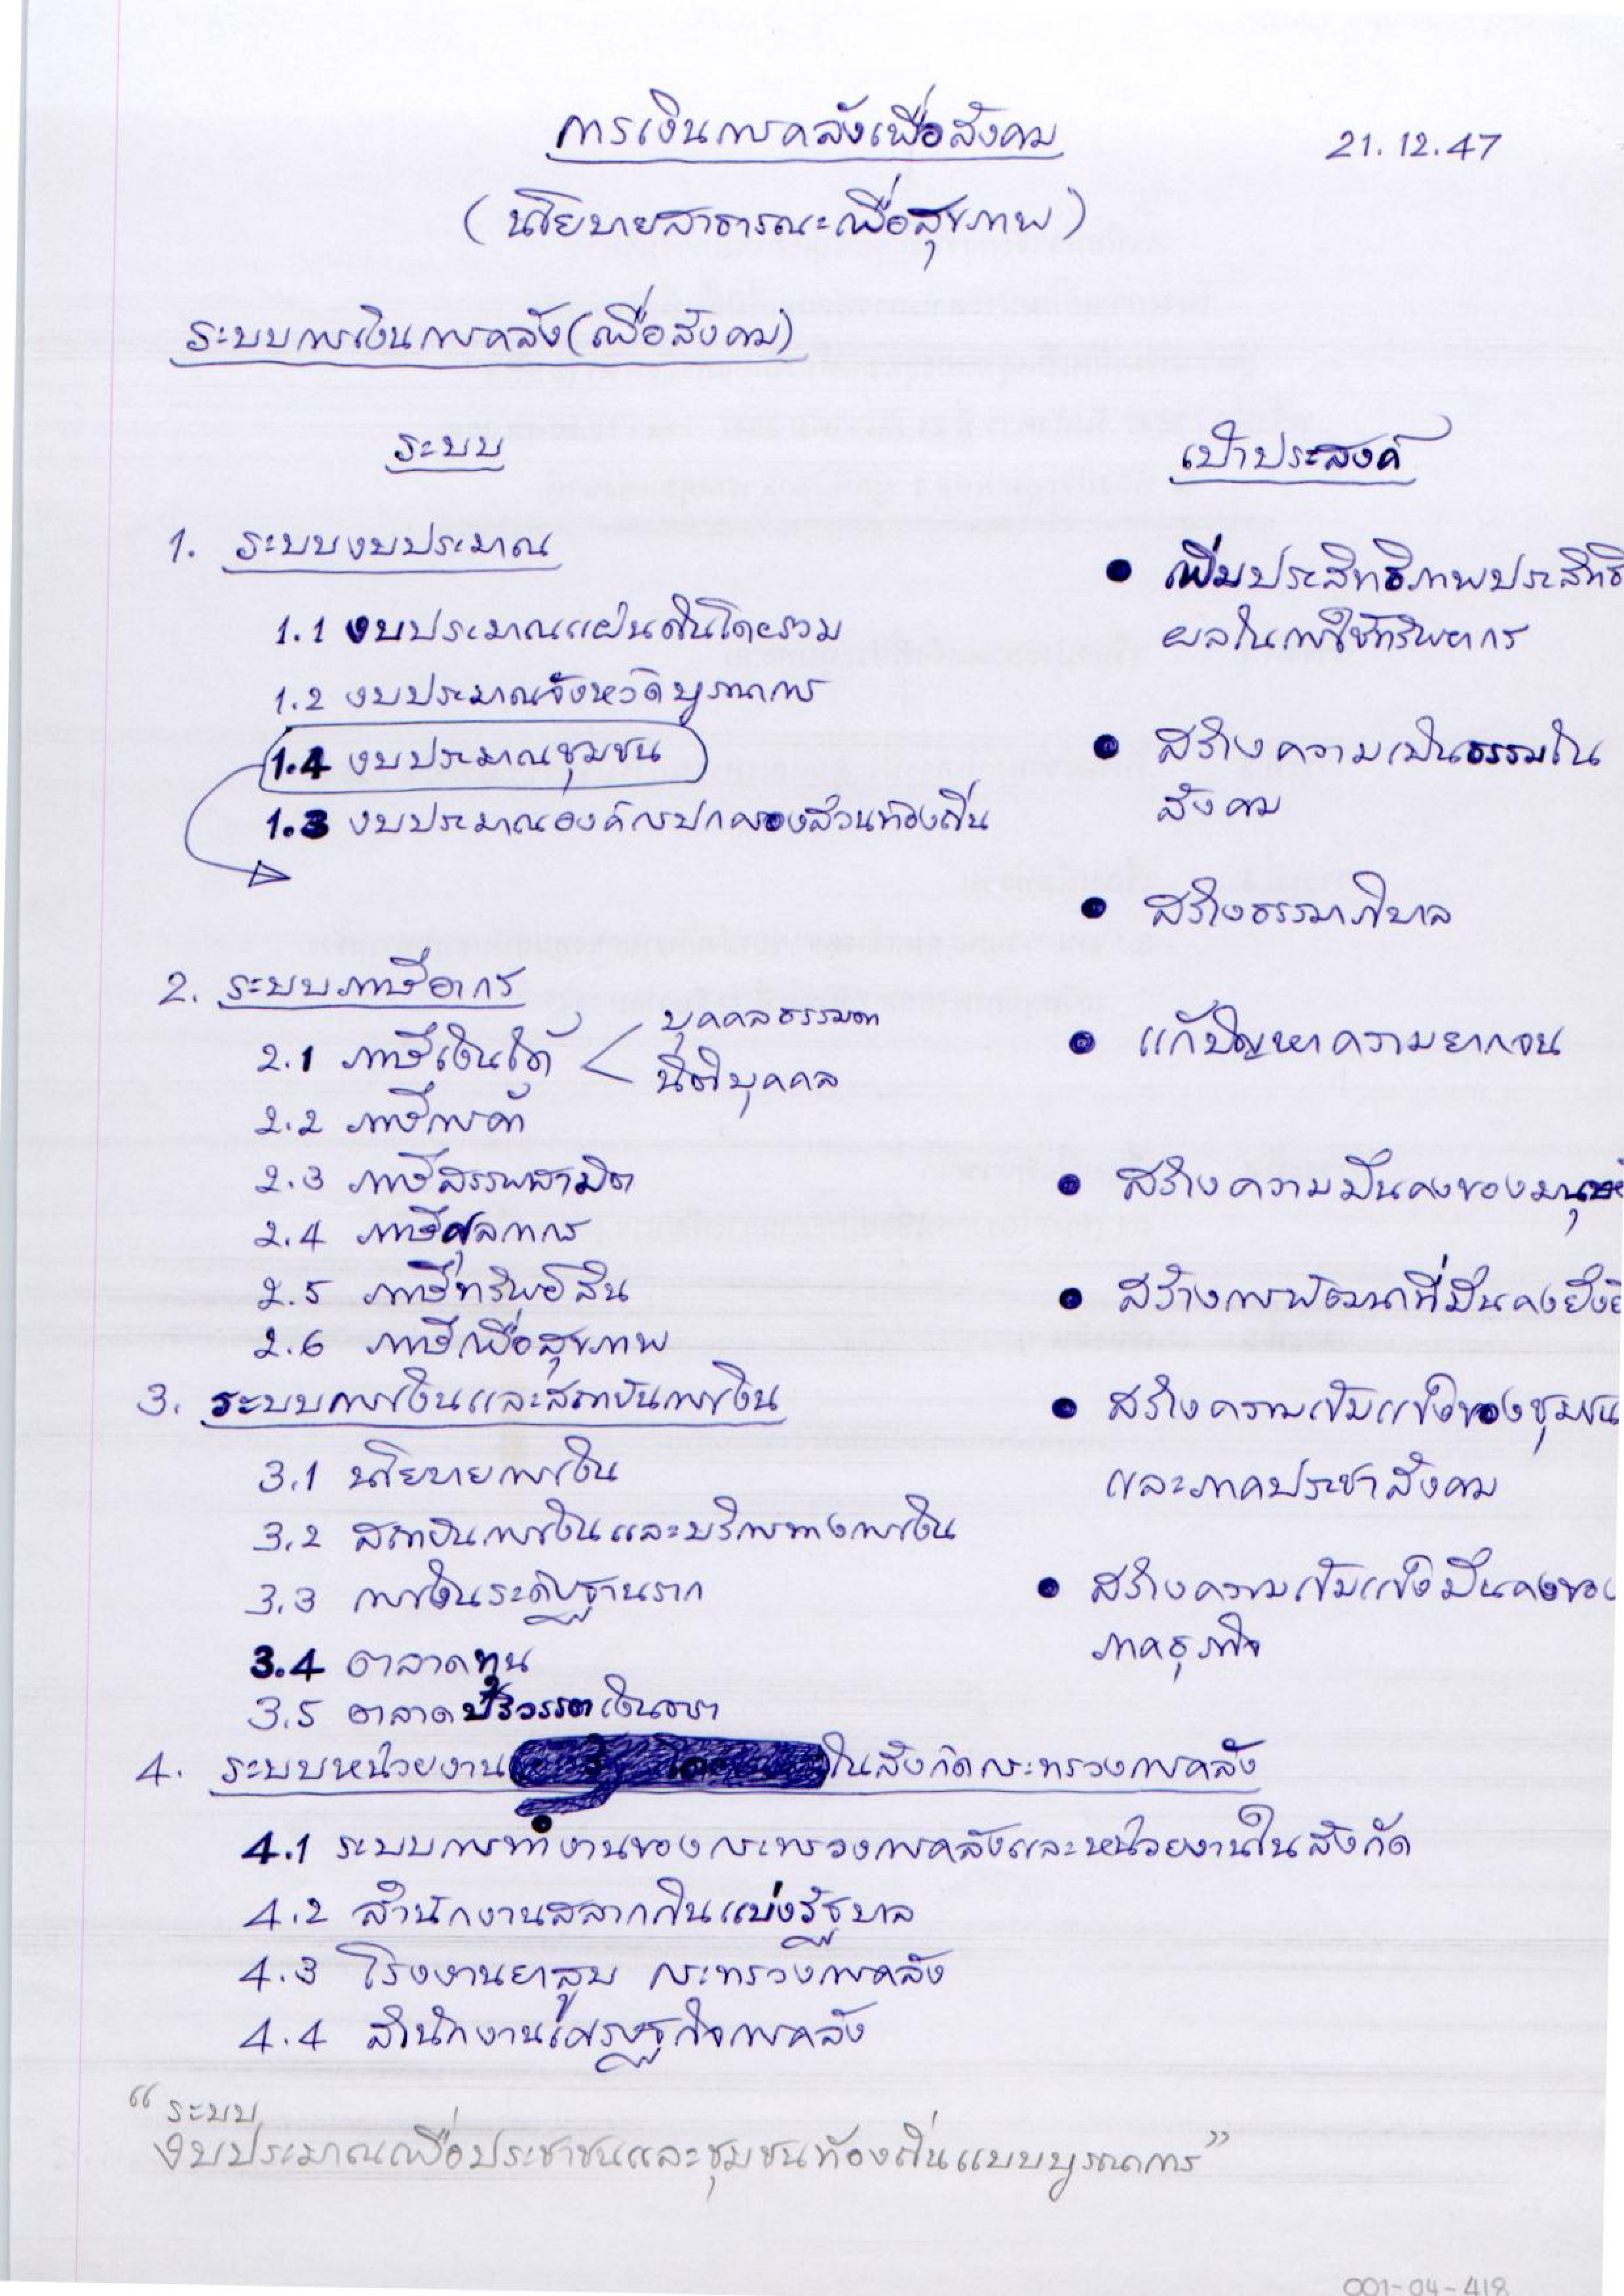 การเงินการคลังเพื่อสังคม
21.12.47
(นโยบายสาธารณะเพื่อสุขภาพ)
ระบบการเงินการคลัง(เพื่อสังคม)
ระบบ
1. ระบบงบประมาณ
1.1 งบประมาณแผ่นดินโดยรวม
1.2 งบประมาณจังหวัดบูรณาการ
1.4 งบประมาณชุมชน
1.3 งบประมาณองค์กรปกครองส่วนท้องถิ่น
2. ระบบภาษีอากร
2.1 ภาษีเงินได้ < บุคคลธรรมดา
นิติบุคคล
2.2 ภาษีการค้า
2.3 ภาษีสรรพสามิต
2.4 ภาษีศุลกากร
2.5 ภาษีทรัพย์สิน
2.6 ภาษีเพื่อสุขภาพ
3. ระบบการเงินและสถาบันการเงิน
3.1 นโยบายการเงิน
3.2 สถาบันการเงินและบริการทางการเงิน
3.3 การเงินระดับฐานราก
3.4 ตลาดทุน
3.5 ตลาดปริวรรตเงินตรา
4. ระบบหน่วยงานในสังกัดกระทรวงการคลัง
4.1 ระบบการทำงานของกระทรวงการคลังและหน่วยงานในสังกัด
4.2 สำนักงานสลากกินแบ่งรัฐบาล
4.3 โรงงานยาสูบ กระทรวงการคลัง
4.4 สำนักงานเศรษฐกิจการคลัง
เป้าประสงค์
• เพิ่มประสิทธิภาพประสิทธิ
ผลในการใช้ทรัพยากร
• สร้างความเป็นธรรมใน
สังคม
• สร้างธรรมาภิบาล
• แก้ปัญหาความยากจน
• สร้างความมั่นคงของมนุษย์
• สร้างการพัฒนาที่มั่นคงยั่งยื
• สร้างความเข้มแข็งของชุมชน
และภาคประชาสังคม
• สร้างความเข้มแข็งมั่นคงของ
ภาคธุรกิจ
“ระบบ
งบประมาณเพื่อประชาชนและชุมชนท้องถิ่นแบบบูรณาการ”
001-04-418